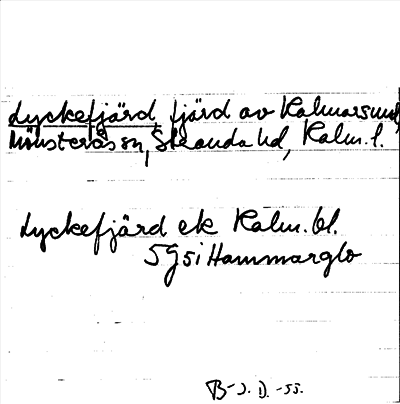 Lyckefjärd fjärd av Kalmarsund,
Mönsterås sn, Stranda hd, Kalm. l.
Lyckefjärd ek Kalm. bl.
5 G 5 i Hammarglo
B-J. D. -55.